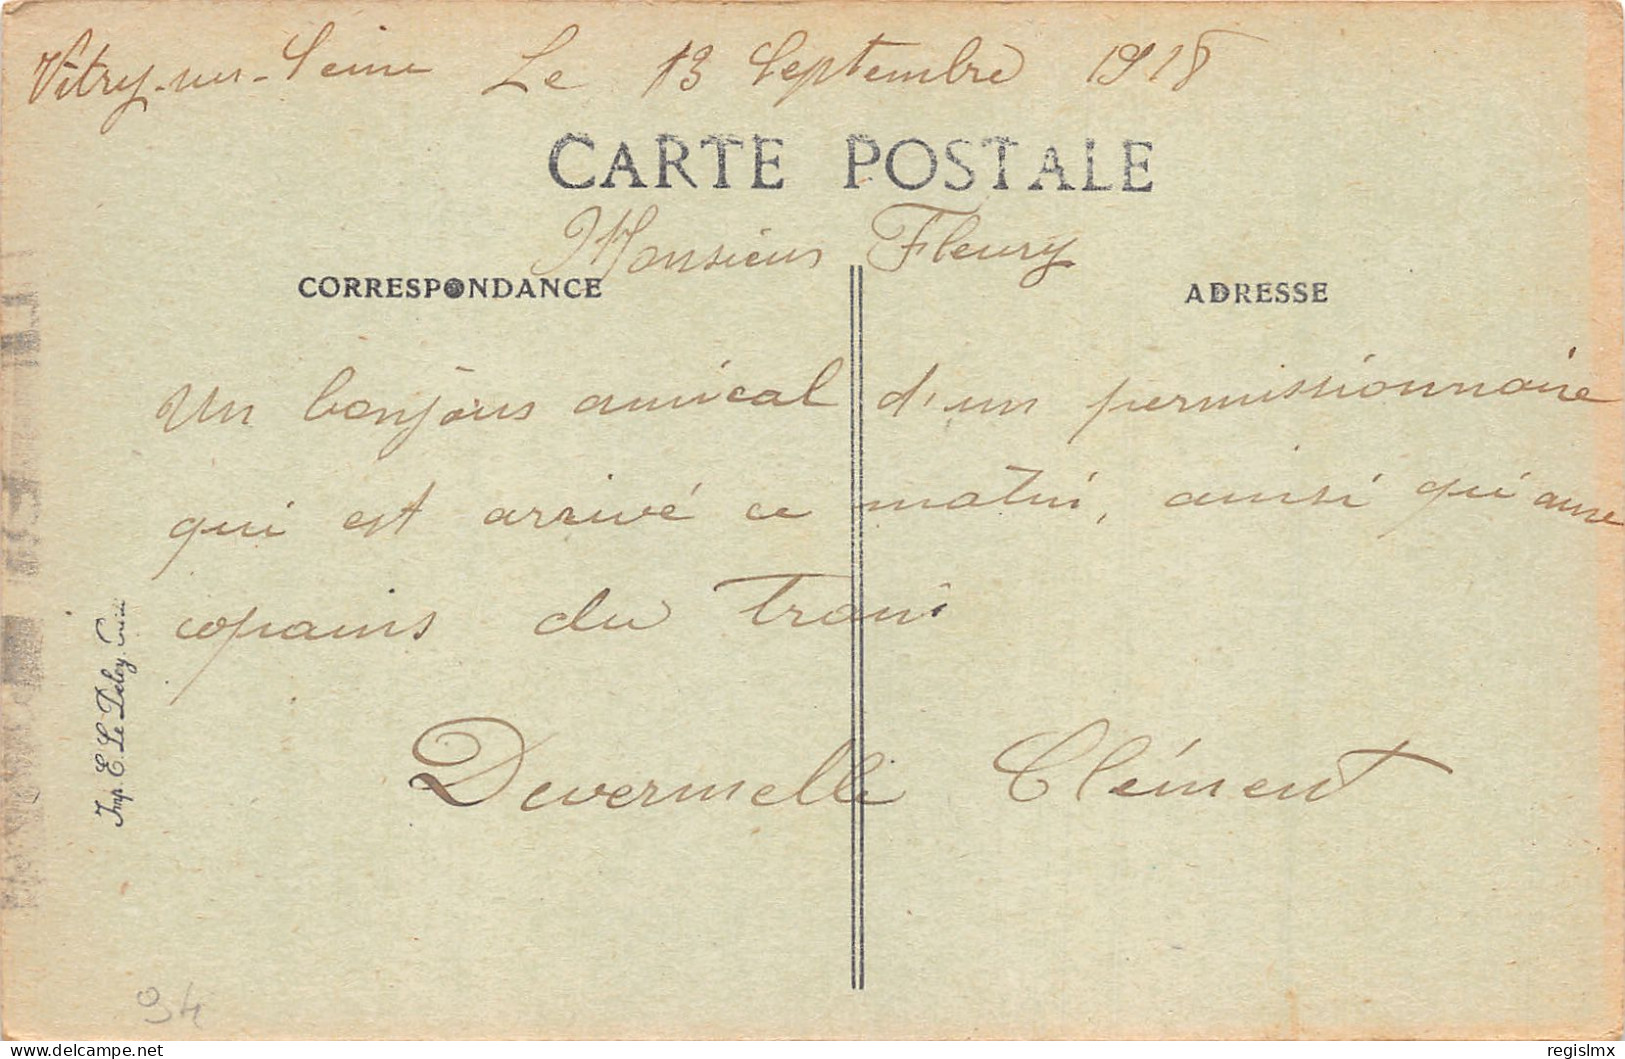 Vitry-sur-Seine Le 13 Septembre 1918
CARTE POSTALE
Monsieur Fleury
CORRESPONDANCE
ADRESSE
Un bonjour amical d'un permissionnaire
qui est arrivé ce matin, ainsi qu'aux
copains du Train
Devermelle Clément
Imp. E. Le Deley, Paris
94
delcampe.net
regislmx